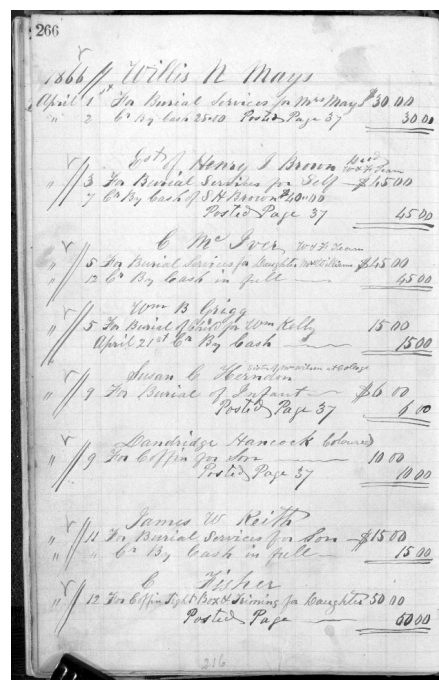 266
1866 // Willis N Mays
April 1st For Burial Services for Mrs Mays $30 00
" 2 Cr By Cash 25=10 Posted Page 37 30 00
Est of Henry I Brown Decd
W & F Team
" // 3 For Burial Services for Self $45 00
7 Cr By Cash of S H Brown $40=00
Posted Page 37 45 00
C Mc Iver W & F Team
" // 5 For Burial Services for Daughter $45 00
" // 12 Cr By Cash in full 45 00
Wm B Grigg
" // 5 For Burial of Child for Wm Kelly 15 00
April 21st Cr By Cash 15 00
Susan C Herndon
" // 9 For Burial of Infant $6 00
Posted Page 37 6 00
Dandridge Hancock Coloured
" // 9 For Coffin for Son 10 00
Posted Page 37 10 00
James W Keith
" // 11 For Burial Services for Son $15 00
" " Cr By Cash in full 15 00
C Fisher
" // 12 For Coffin Tight Box & Triming for Daughter 50 00
Posted Page 50 00
216